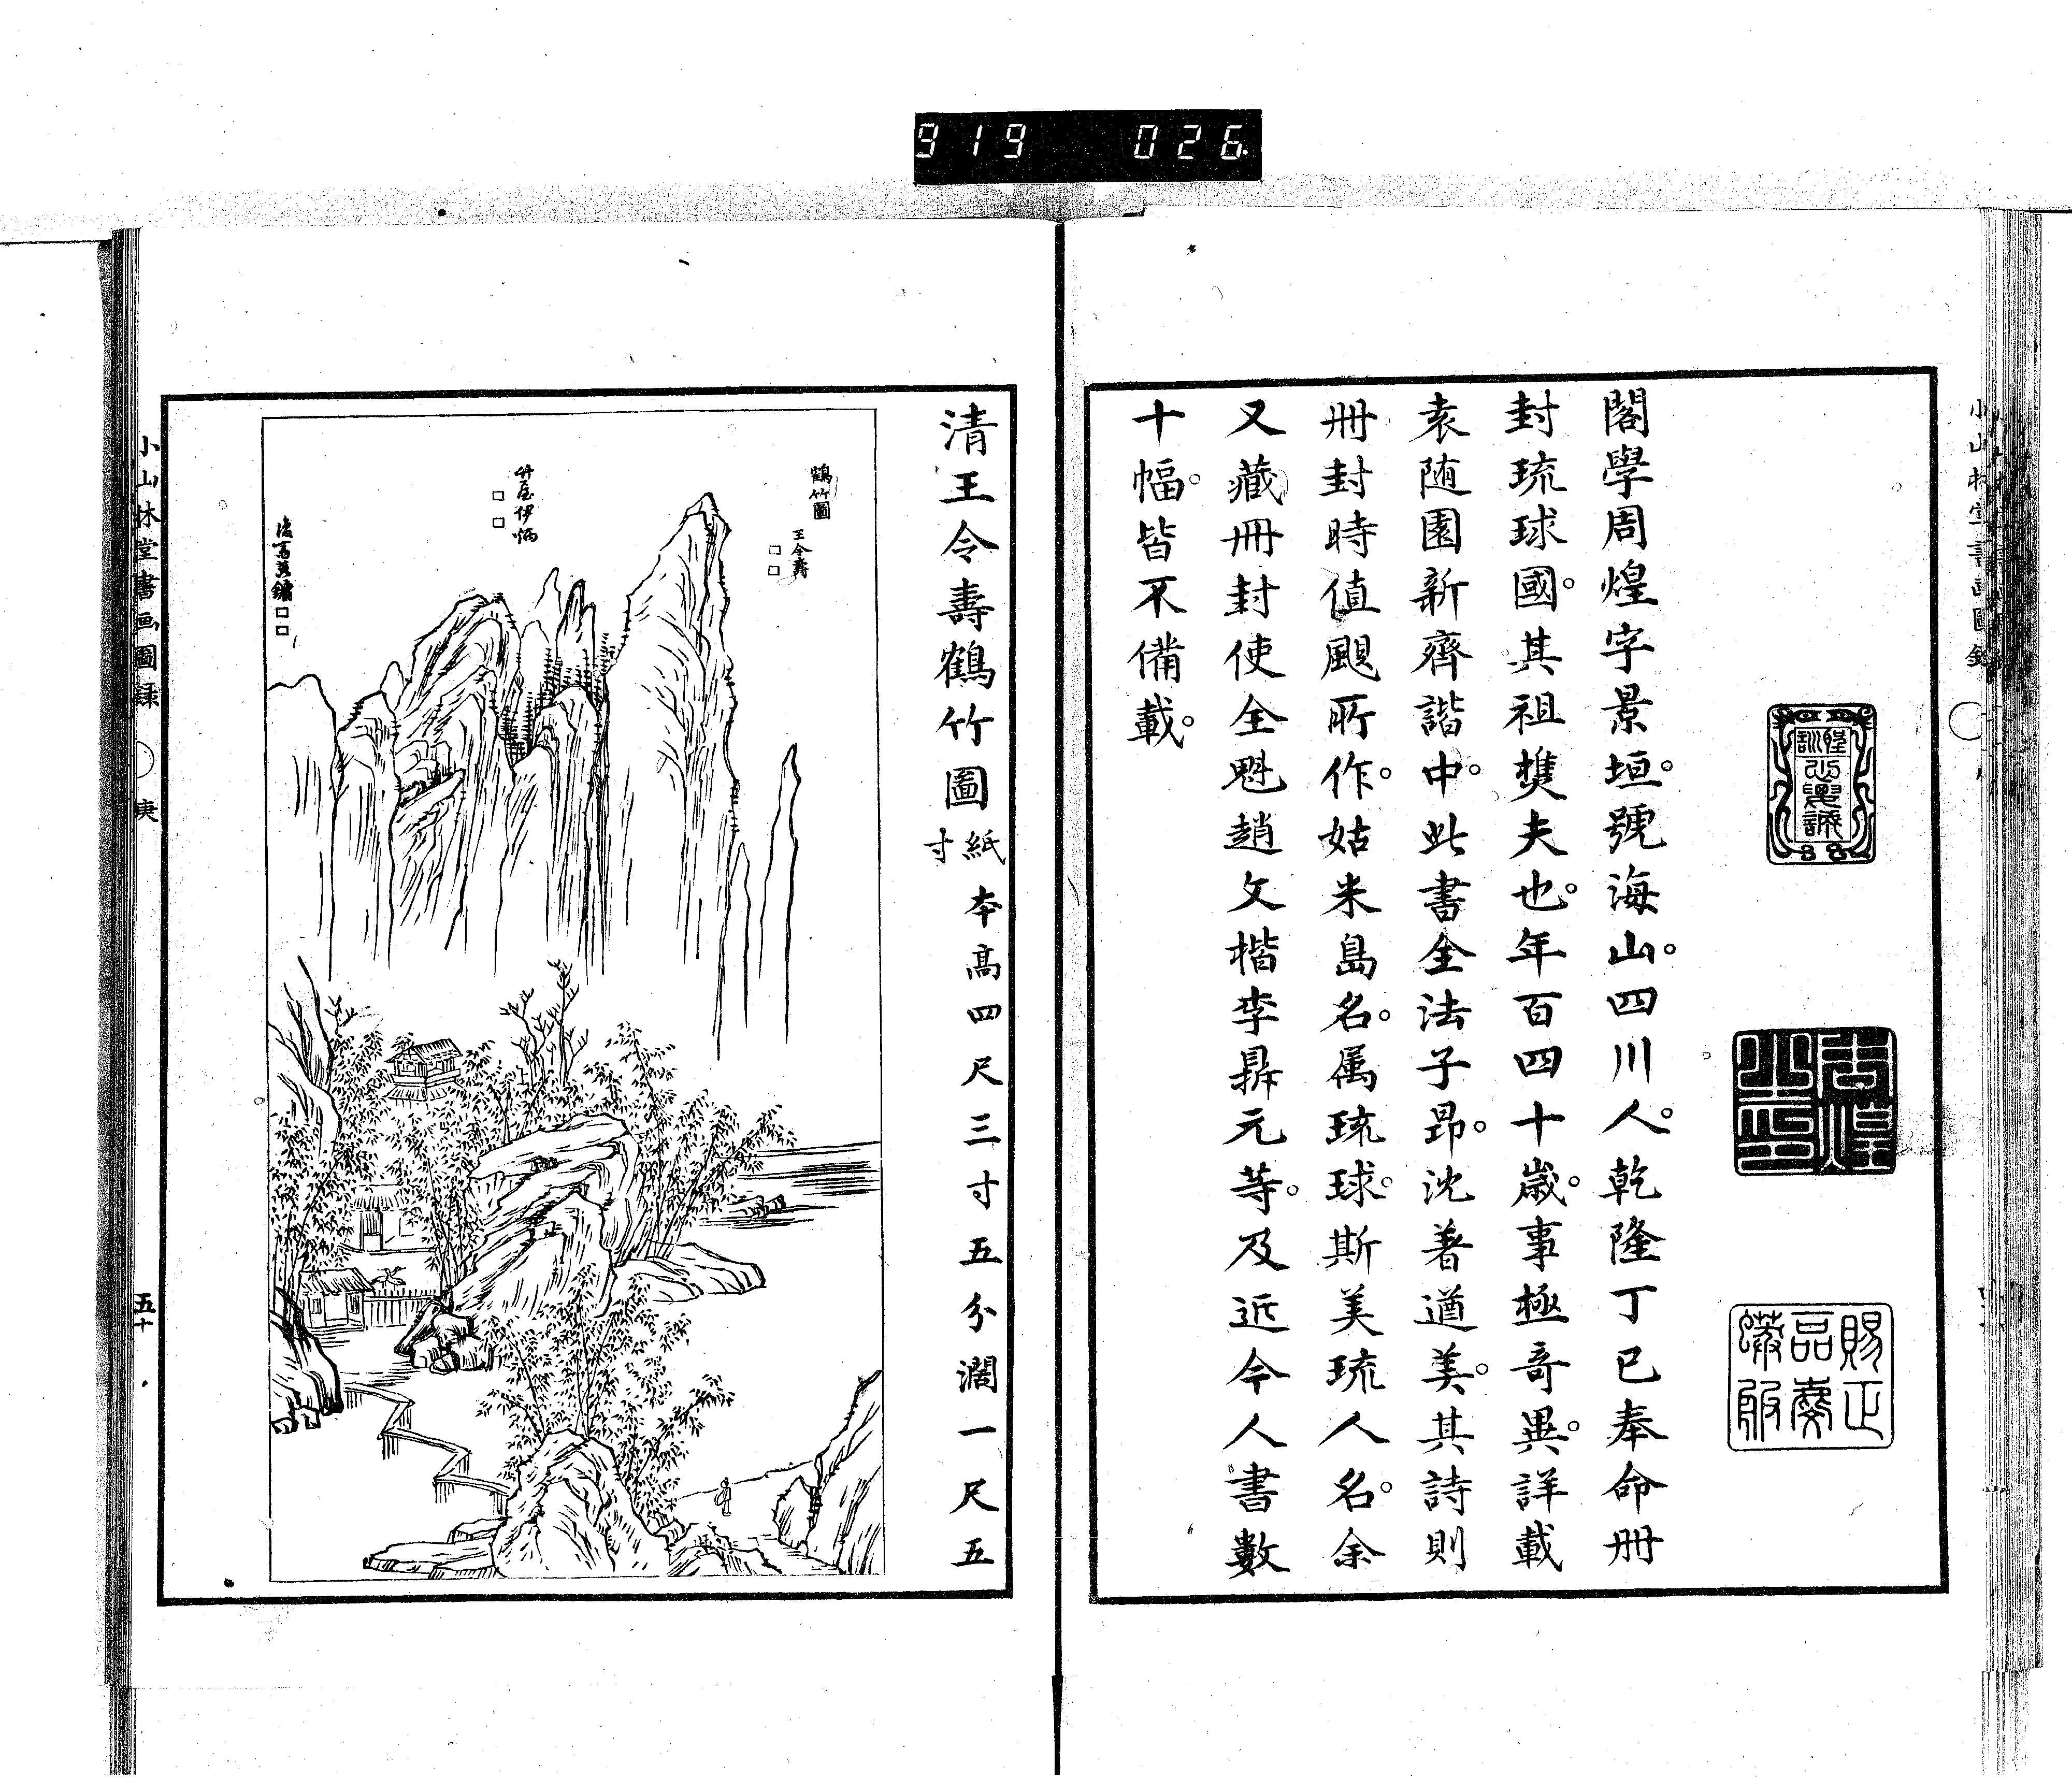 919 026
閣學周煌字景垣。號海山。四川人。乾隆丁巳奉命冊
封琉球國。其祖樵夫也。年百四十歲。事極奇異。詳載
袁随園新齊諧中。此書全法子昂。沈着遒美。其詩則
冊封時值颶所作。姑米島名。属琉球。斯美琉人名。余
又藏冊封使全魁趙文楷李鼎元等。及近今人書數
十幅。皆不備載。
周煌
賜正一品
清王令壽鶴竹圖
紙本高四尺三寸五分濶一尺五
寸
鶴竹圖
王令壽
竹居伊炳
小山林堂書画圖録
庚
五十